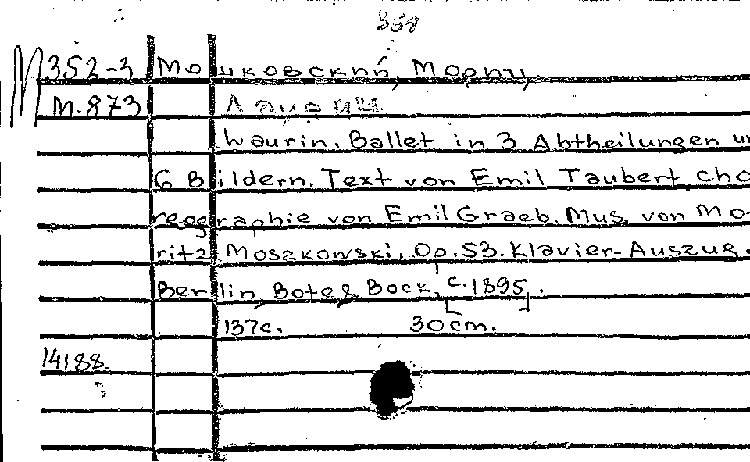 358
М 352-3 Мошковский, Мориц
М.873 Лаурин
Laurin. Ballet in 3 Abtheilungen u
6 Bildern. Text von Emil Taubert cho
reographie von Emil Graeb. Mus. von Mo
ritz Moszkowski. Op. 53. Klavier-Auszug.
Berlin, Bote & Bock, c. 1895.
137c. 30cm.
14188.